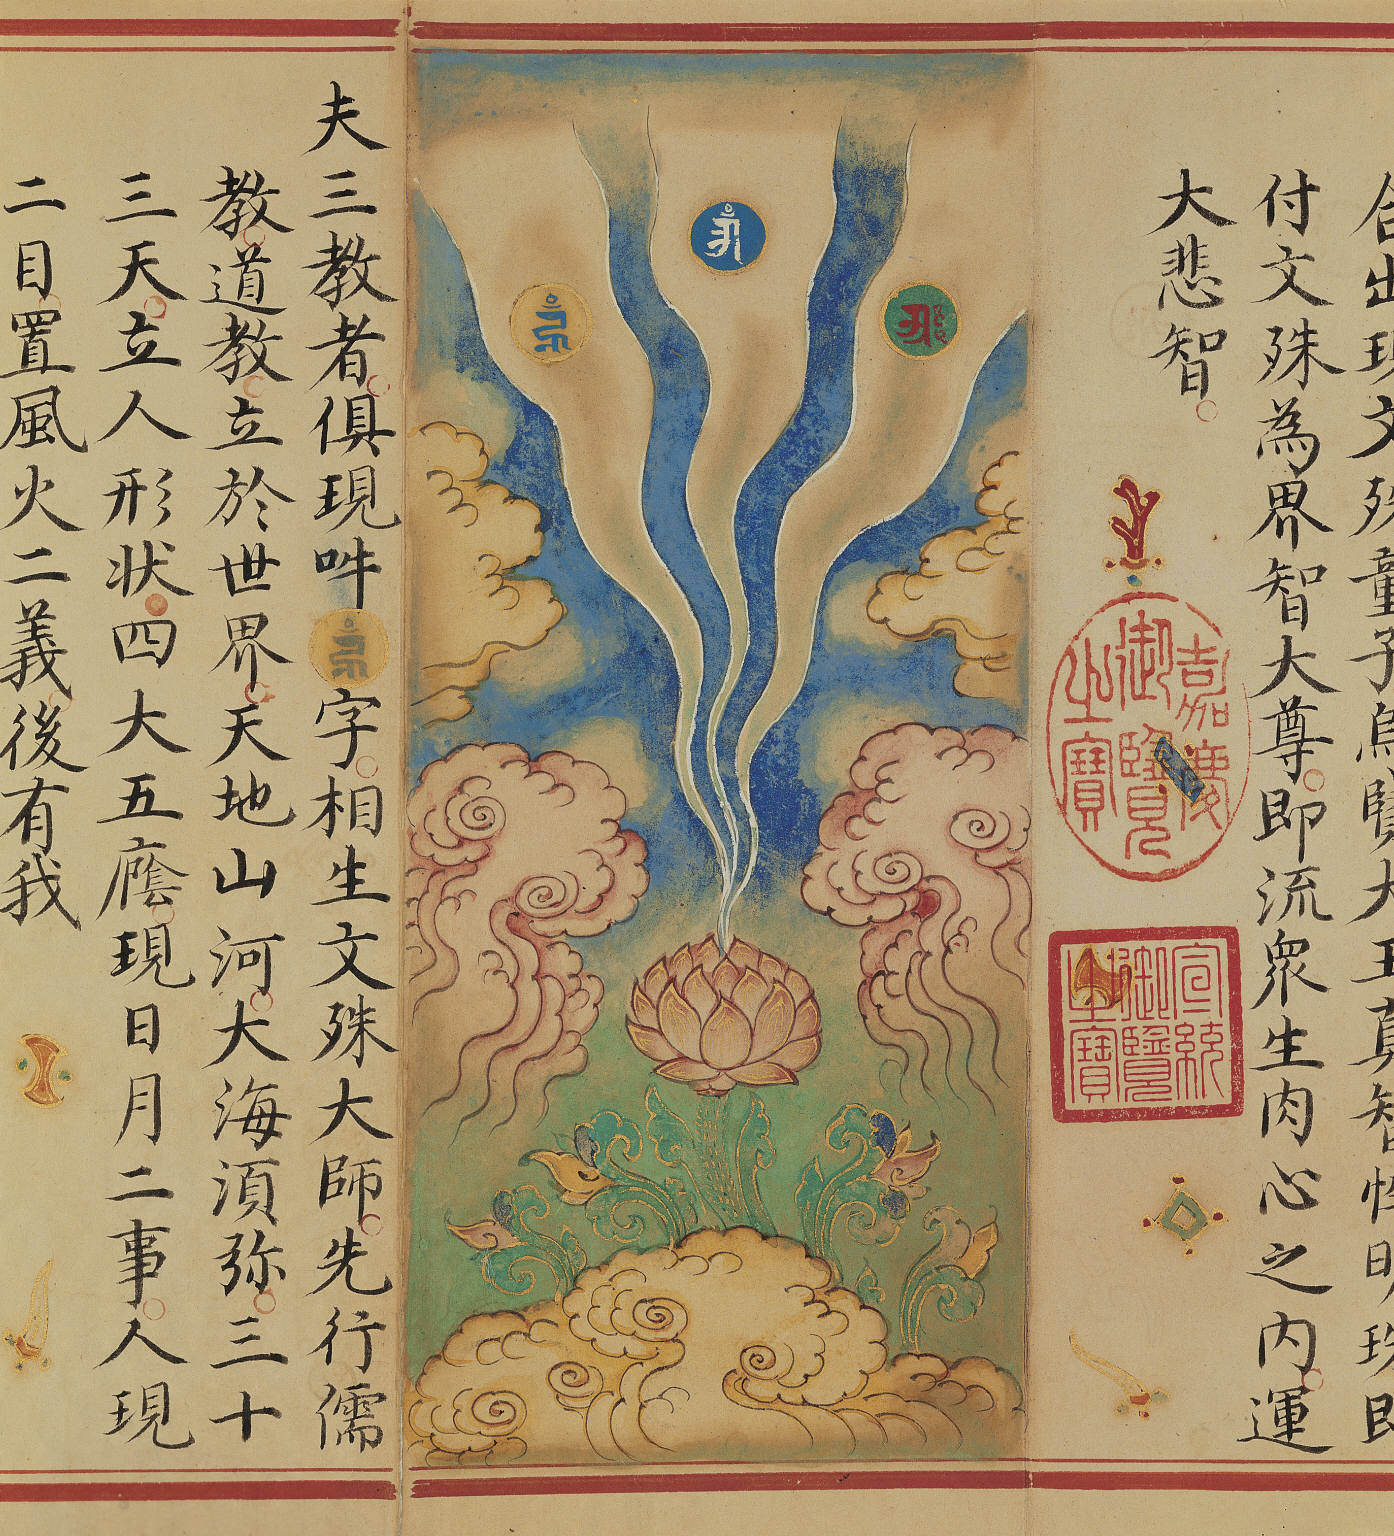 出現文殊童子烏賢大王真智性明珠即
付文殊為界智大尊即流衆生肉心之内運
大悲智
嘉慶御覽之寶
宣統御覽之寶
夫三教者俱現吽字相生文殊大師先行儒
教道教立於世界天地山河大海須弥三十
三天立人形状四大五廕現日月二事人現
二目置風火二義後有我